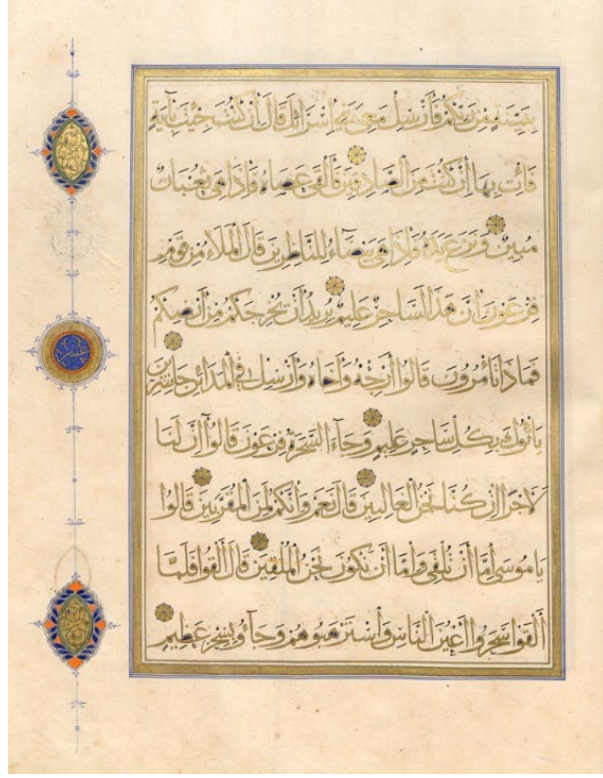 بِبَيِّنَةٍ مِنْ رَبِّكُمْ فَأَرْسِلْ مَعِيَ بَنِي إِسْرَائِلَ قَالَ إِنْ كُنْتَ جِئْتَ بِآيَةٍ
فَأْتِ بِهَا إِنْ كُنْتَ مِنَ الصَّادِقِينَ فَأَلْقَى عَصَاهُ فَإِذَا هِيَ ثُعْبَانٌ
مُبِينٌ وَنَزَعَ يَدَهُ فَإِذَا هِيَ بَيْضَاءُ لِلنَّاظِرِينَ قَالَ الْمَلَاءُ مِنْ قَوْمِ
فِرْعَوْنَ إِنَّ هَذَا لَسَاحِرٌ عَلِيمٌ يُرِيدُ أَنْ يُخْرِجَكُمْ مِنْ أَرْضِكُمْ
فَمَاذَا تَأْمُرُونَ قَالُوا أَرْجِهْ وَأَخَاهُ وَأَرْسِلْ فِي الْمَدَائِنِ حَاشِرِينَ
يَأْتُوكَ بِكُلِّ سَاحِرٍ عَلِيمٍ وَجَاءَ السَّحَرَةُ فِرْعَوْنَ قَالُوا إِنَّ لَنَا
لَأَجْرًا إِنْ كُنَّا نَحْنُ الْغَالِبِينَ قَالَ نَعَمْ وَإِنَّكُمْ لَمِنَ الْمُقَرَّبِينَ قَالُوا
يَامُوسَى إِمَّا أَنْ تُلْقِيَ وَإِمَّا أَنْ نَكُونَ نَحْنُ الْمُلْقِينَ قَالَ أَلْقُوا فَلَمَّا
أَلْقَوْا سَحَرُوا أَعْيُنَ النَّاسِ وَاسْتَرْهَبُوهُمْ وَجَاؤُ بِسِحْرٍ عَظِيمٍ